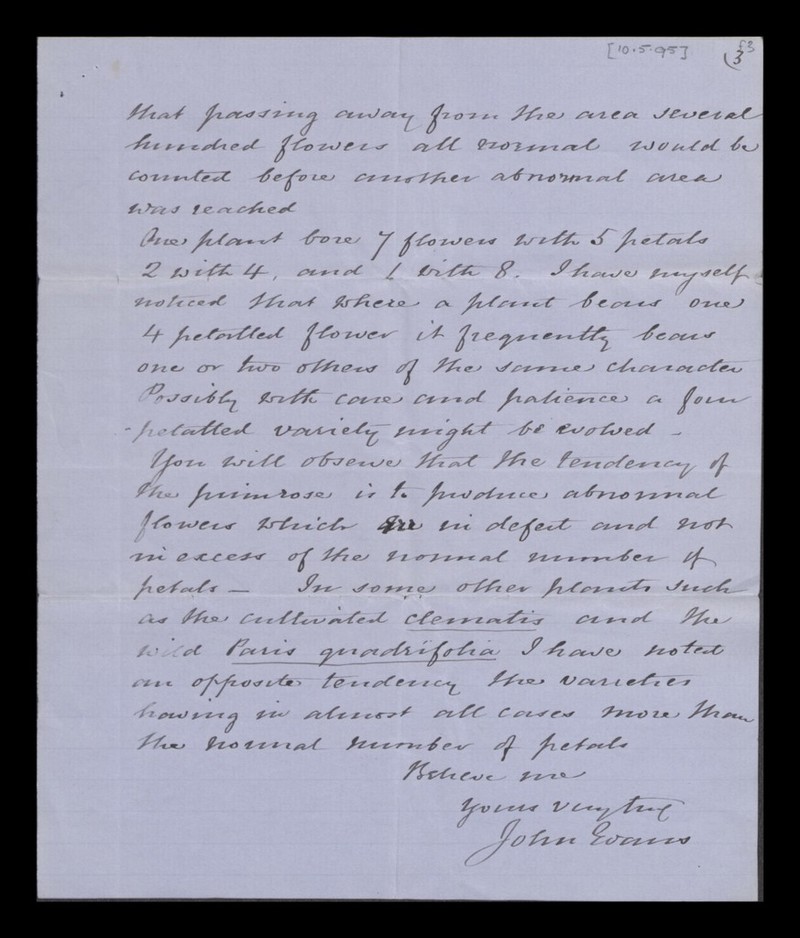 [10.5.95]
3
that passing away from the area several
hundred flowers all normal would be
counted before another abnormal area
was reached
One plant bore 7 flowers with 5 petals
2 with 4, and 1 with 8. I have myself
noticed that where a plant bears one
4 petalled flower it frequently bears
one or two others of the same character
Possibly with care and patience a four
-petalled variety might be evolved -
You will observe that the tendency of
the primrose is to produce abnormal
flowers which are in defect and not
in excess of the normal number of
petals - In some other plants such
as the cultivated clematis and the
wild Paris quadrifolia I have noted
an opposite tendency the varieties
having in almost all cases more than
the normal number of petals
Believe me
yours very truly
John Evans